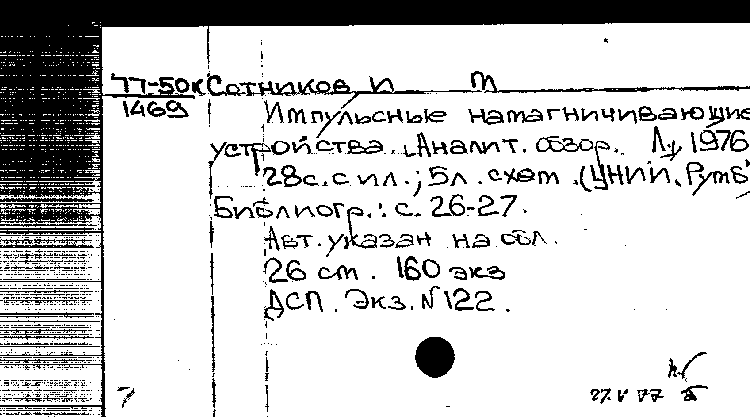 77-50к Сотников И М
1469 Импульсные намагничивающие
устройства. Аналит. обзор. Л., 1976
28с. с ил.; 5л. схем. (ЦНИИ "Румб"
Библиогр.: с. 26-27.
Авт. указан на обл.
26 см. 160 экз
ДСП. Экз. N 122.
27 V 77